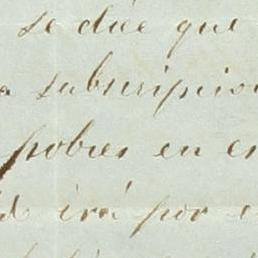 se dice que
a subscripcio
pobres en es
d irá por e